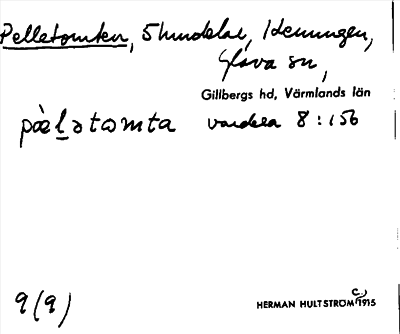 Pelletomten, 5 hundelar, Henningen,
Glava sn,
Gillbergs hd, Värmlands län
pæ̀ḷətωmta vardera 8:156
9(9)
HERMAN HULTSTRÖM C:a 1915